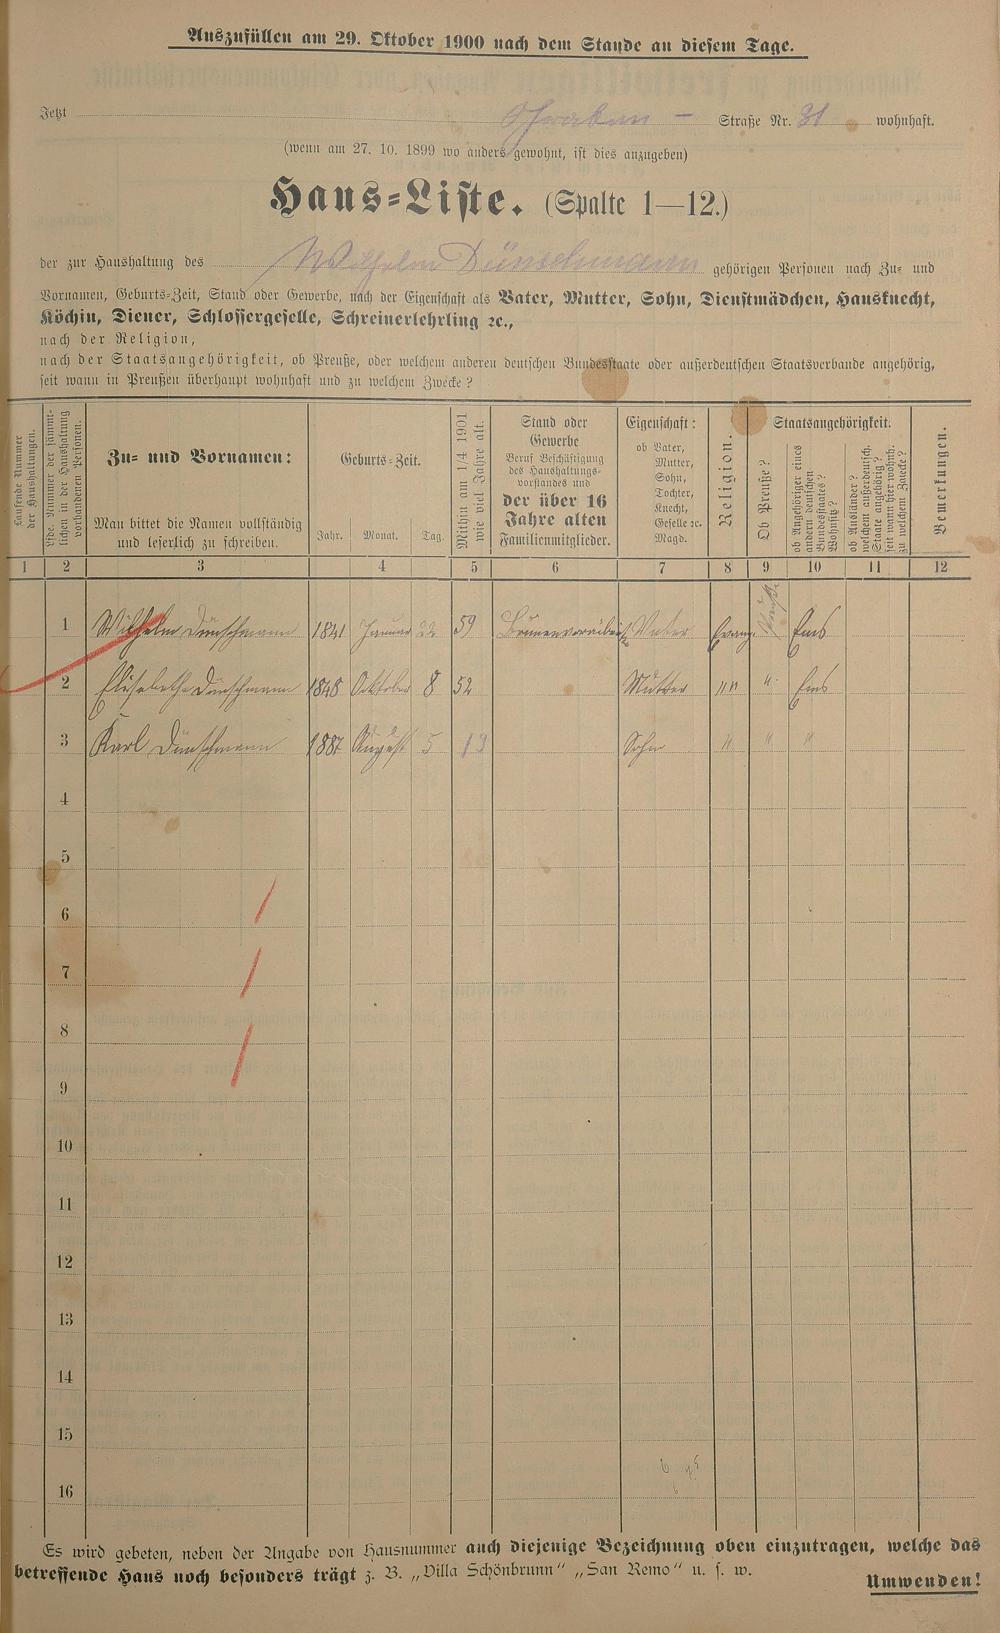 Auszufüllen am 29. Oktober 1900 nach dem Stande an diesem Tage.
Jetzt Straße Nr. 31 wohnhaft.
(wenn am 27. 10. 1899 wo anders gewohnt, ist dies anzugeben)
Haus-Liste. (Spalte 1—12.)
der zur Haushaltung des Wilhelm Dünschmann gehörigen Personen nach Zu- und
Vornamen, Geburts-Zeit, Stand oder Gewerbe, nach der Eigenschaft als Vater, Mutter, Sohn, Dienstmädchen, Hausknecht,
Köchin, Diener, Schlossergeselle, Schreinerlehrling ꝛc.,
nach der Religion,
nach der Staatsangehörigkeit, ob Preuße, oder welchem anderen deutschen Bundesstaate oder außerdeutschen Staatsverbande angehörig,
seit wann in Preußen überhaupt wohnhaft und zu welchem Zwecke?
Laufende Nummer
der Haushaltungen.
Lfde. Nummer der sämmt-
lichen in der Haushaltung
vorhandenen Personen.
Zu- und Vornamen:
Man bittet die Namen vollständig
und leserlich zu schreiben.
Geburts-Zeit.
Jahr. Monat. Tag.
Mithin am 1/4 1901
wie viel Jahre alt.
Stand oder
Gewerbe
Beruf Beschäftigung
des Haushaltungs-
vorstandes und
der über 16
Jahre alten
Familienmitglieder.
Eigenschaft:
ob Vater,
Mutter,
Sohn,
Tochter,
Knecht,
Geselle ꝛc.
Magd.
Religion.
Staatsangehörigkeit.
Ob Preuße?
ob Angehöriger eines
andern deutschen
Bundesstaates?
Wohnsitz?
ob Ausländer?
welchem außerdeutsch.
Staate angehörig?
seit wann hier wohnh.
zu welchem Zwecke?
Bemerkungen.
1 2 3 4 5 6 7 8 9 10 11 12
1 Wilhelm Dünschmann 1841 Januar 22 59 Vater Evang. Preuße Ems
2 Elisabethe Dünschmann 1848 Oktober 8 52 Mutter " " " Ems
3 Karl Dünschmann 1887 August 5 13 Sohn " " "
4
5
6
7
8
9
10
11
12
13
14
15
16
Es wird gebeten, neben der Angabe von Hausnummer auch diejenige Bezeichnung oben einzutragen, welche das
betreffende Haus noch besonders trägt z. B. „Villa Schönbrunn" „San Remo" u. s. w.
Umwenden!